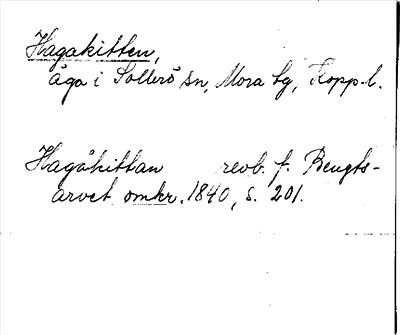 Hagakitten,
äga i Sollerö sn, Mora tg, Kopp. l.
Hagåkittan revb. f. Bengts-
arvet omkr. 1840, s. 201.